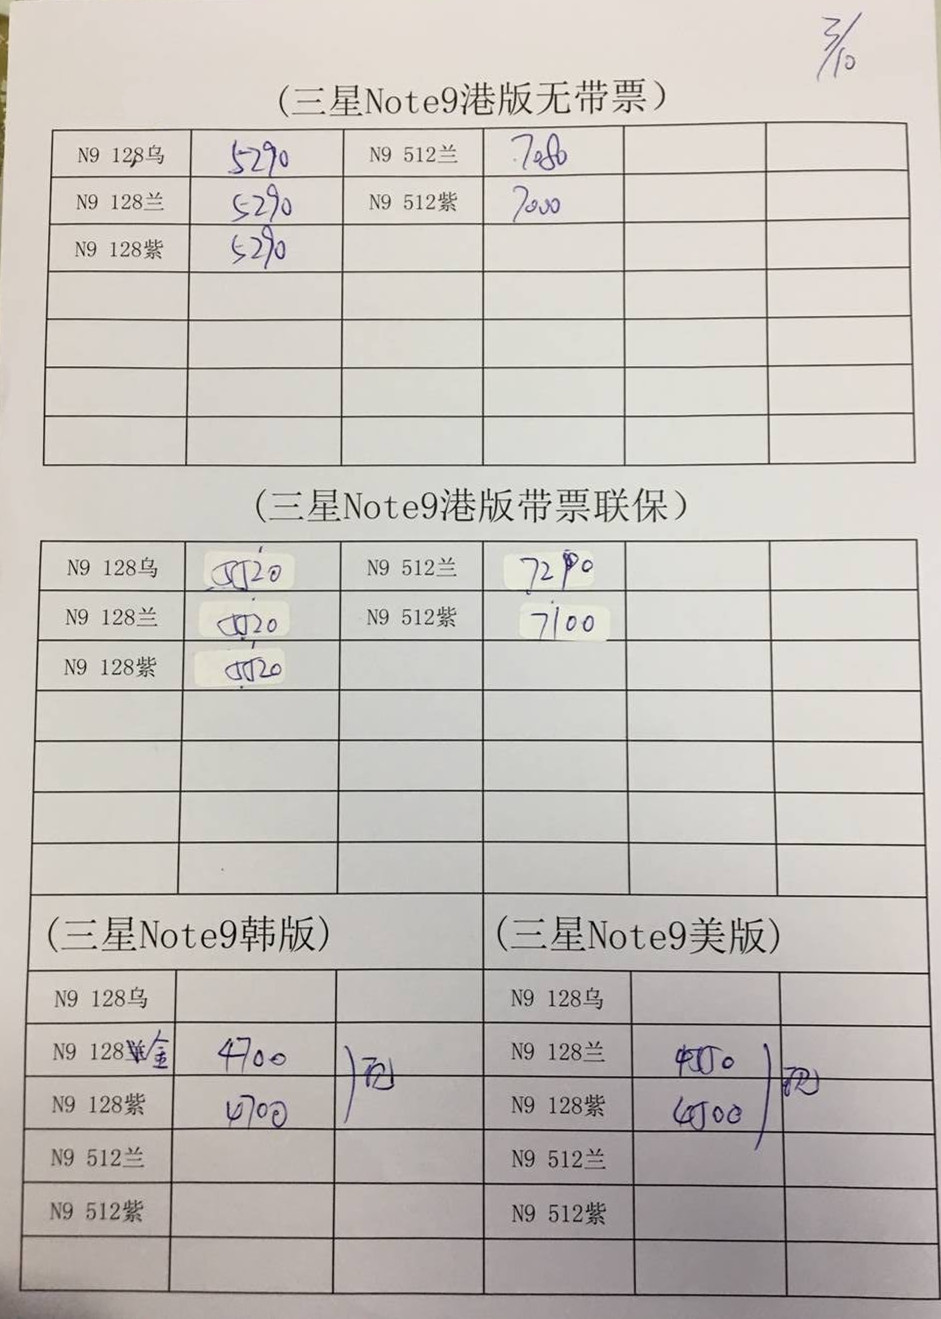 3/10
(三星Note9港版无带票)
N9 128乌 5290 N9 512兰 7080
N9 128兰 5290 N9 512紫 7000
N9 128紫 5290
(三星Note9港版带票联保)
N9 128乌 5520 N9 512兰
N9 128兰 5520 N9 512紫 7100
N9 128紫 5520
(三星Note9韩版) (三星Note9美版)
N9 128乌 N9 128乌
N9 128金 4700 N9 128兰 4550
N9 128紫 4700 N9 128紫 4500
N9 512兰 N9 512兰
N9 512紫 N9 512紫